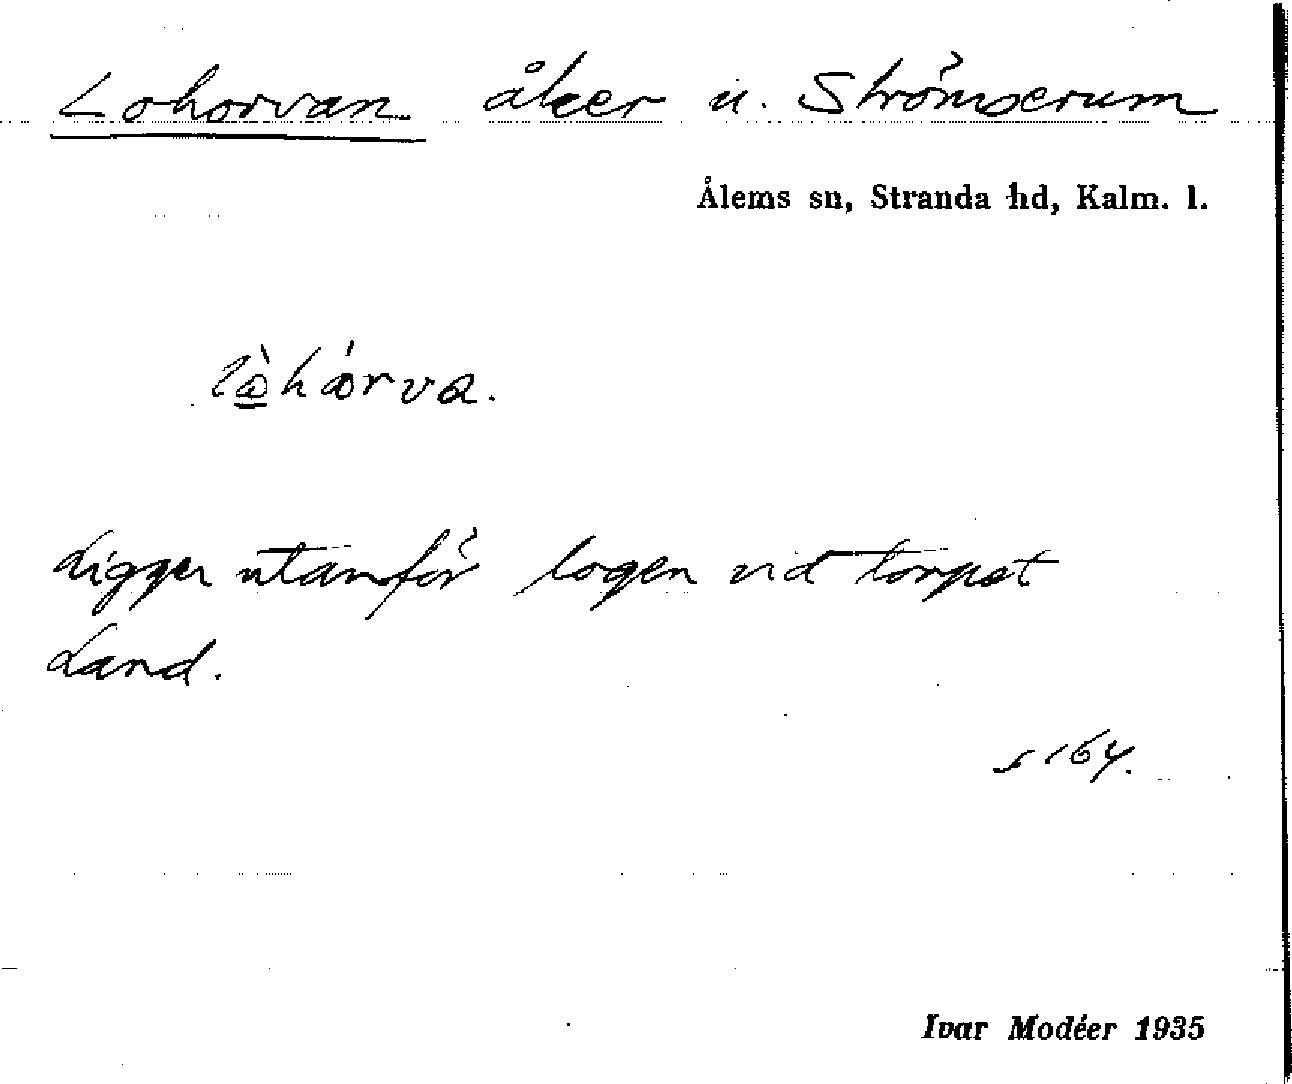 Lohorvan åker u. Strömserum
Ålems sn, Stranda hd, Kalm. l.
Ligger utanför logen vid torpet
Land.
s 164.
Ivar Modéer 1935